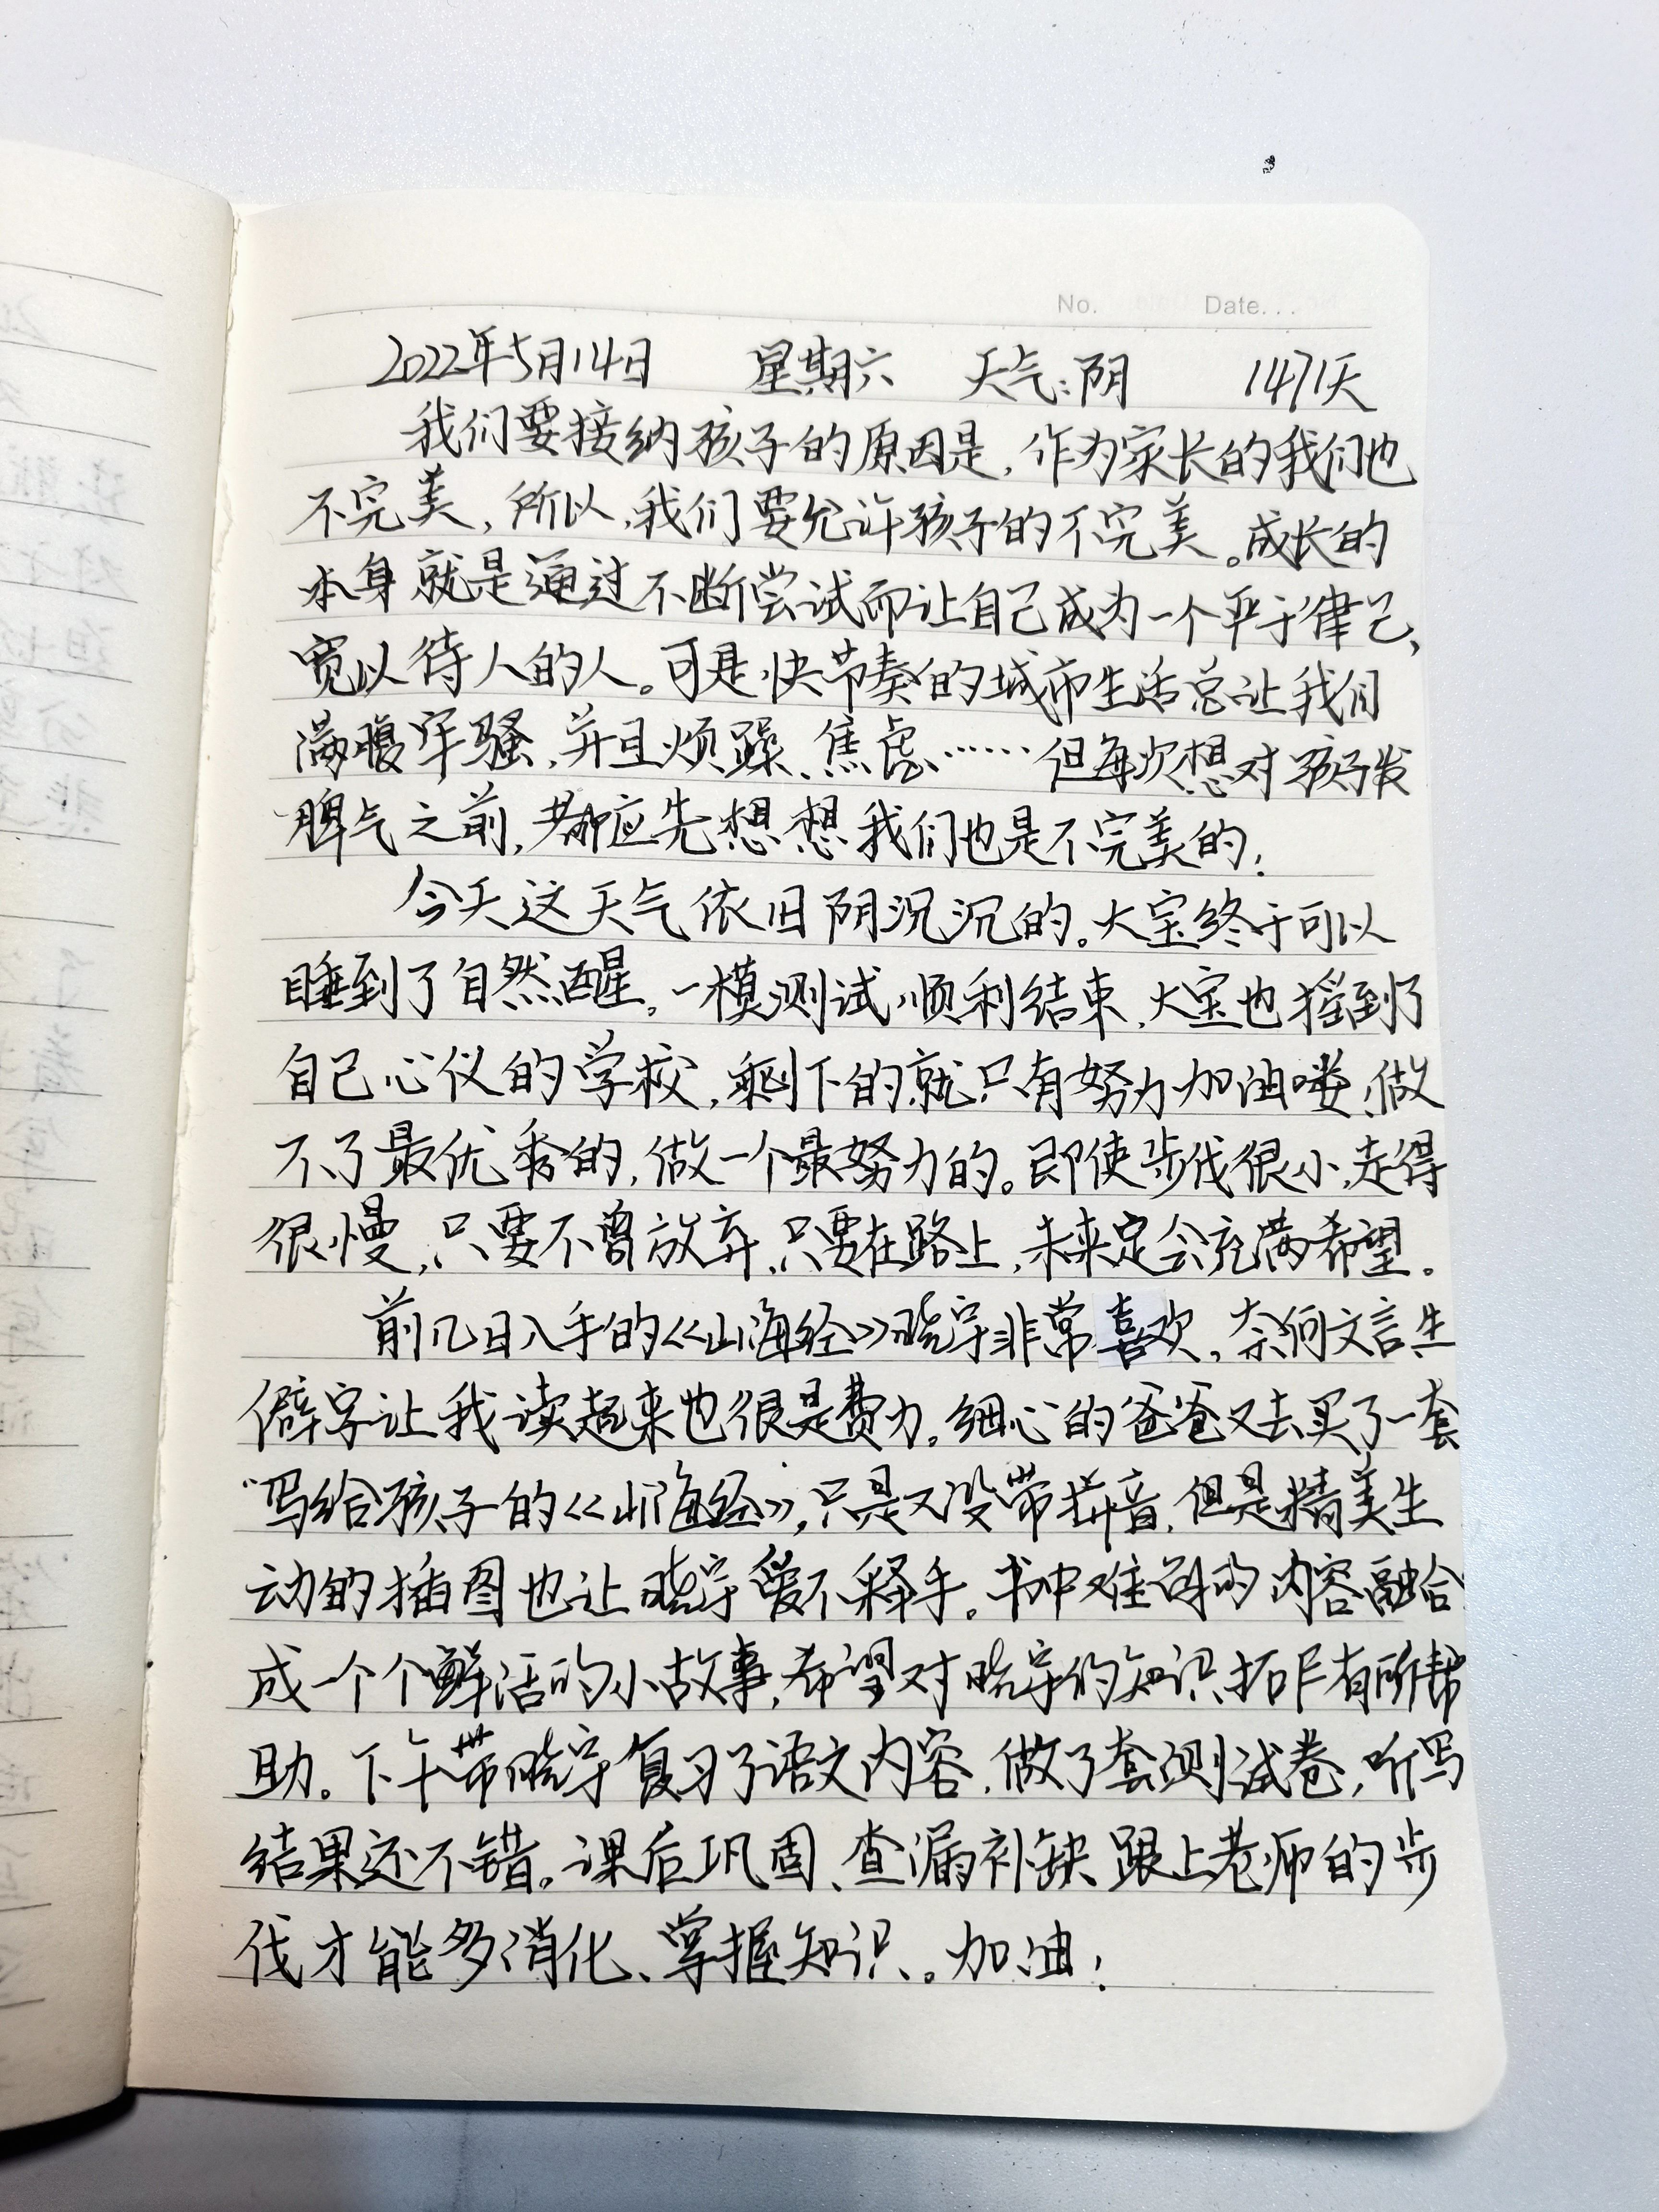 No. Date...
2022年5月14日 星期六 天气:阴 1471天
我们要接纳孩子的原因是,作为家长的我们也
不完美,所以,我们要允许孩子的不完美。成长的
本身就是通过不断尝试而让自己成为一个严于律己、
宽以待人的人。可是快节奏的城市生活总让我们
满腹牢骚,并且烦躁、焦虑……但每次想对孩子发
脾气之前,都应先想想我们也是不完美的!
今天这天气依旧阴沉沉的。大宝终于可以
睡到了自然醒。一模测试顺利结束,大宝也摇到了
自己心仪的学校,剩下的就只有努力加油喽,做
不了最优秀的,做一个最努力的。即使步伐很小,走得
很慢,只要不曾放弃,只要在路上,未来定会充满希望。
前几日入手的《山海经》晓宇非常喜欢,奈何文言生
僻字让我读起来也很是费力。细心的爸爸又去买了一套
“写给孩子的《山海经》,只是又没带拼音,但是精美生
动的插图也让晓宇爱不释手。书中难读的内容融合
成一个个鲜活的小故事,希望对晓宇的知识拓展有所帮
助。下午带晓宇复习了语文内容,做了套测试卷,听写
结果还不错。课后巩固、查漏补缺跟上老师的步
伐才能多消化、掌握知识。加油!